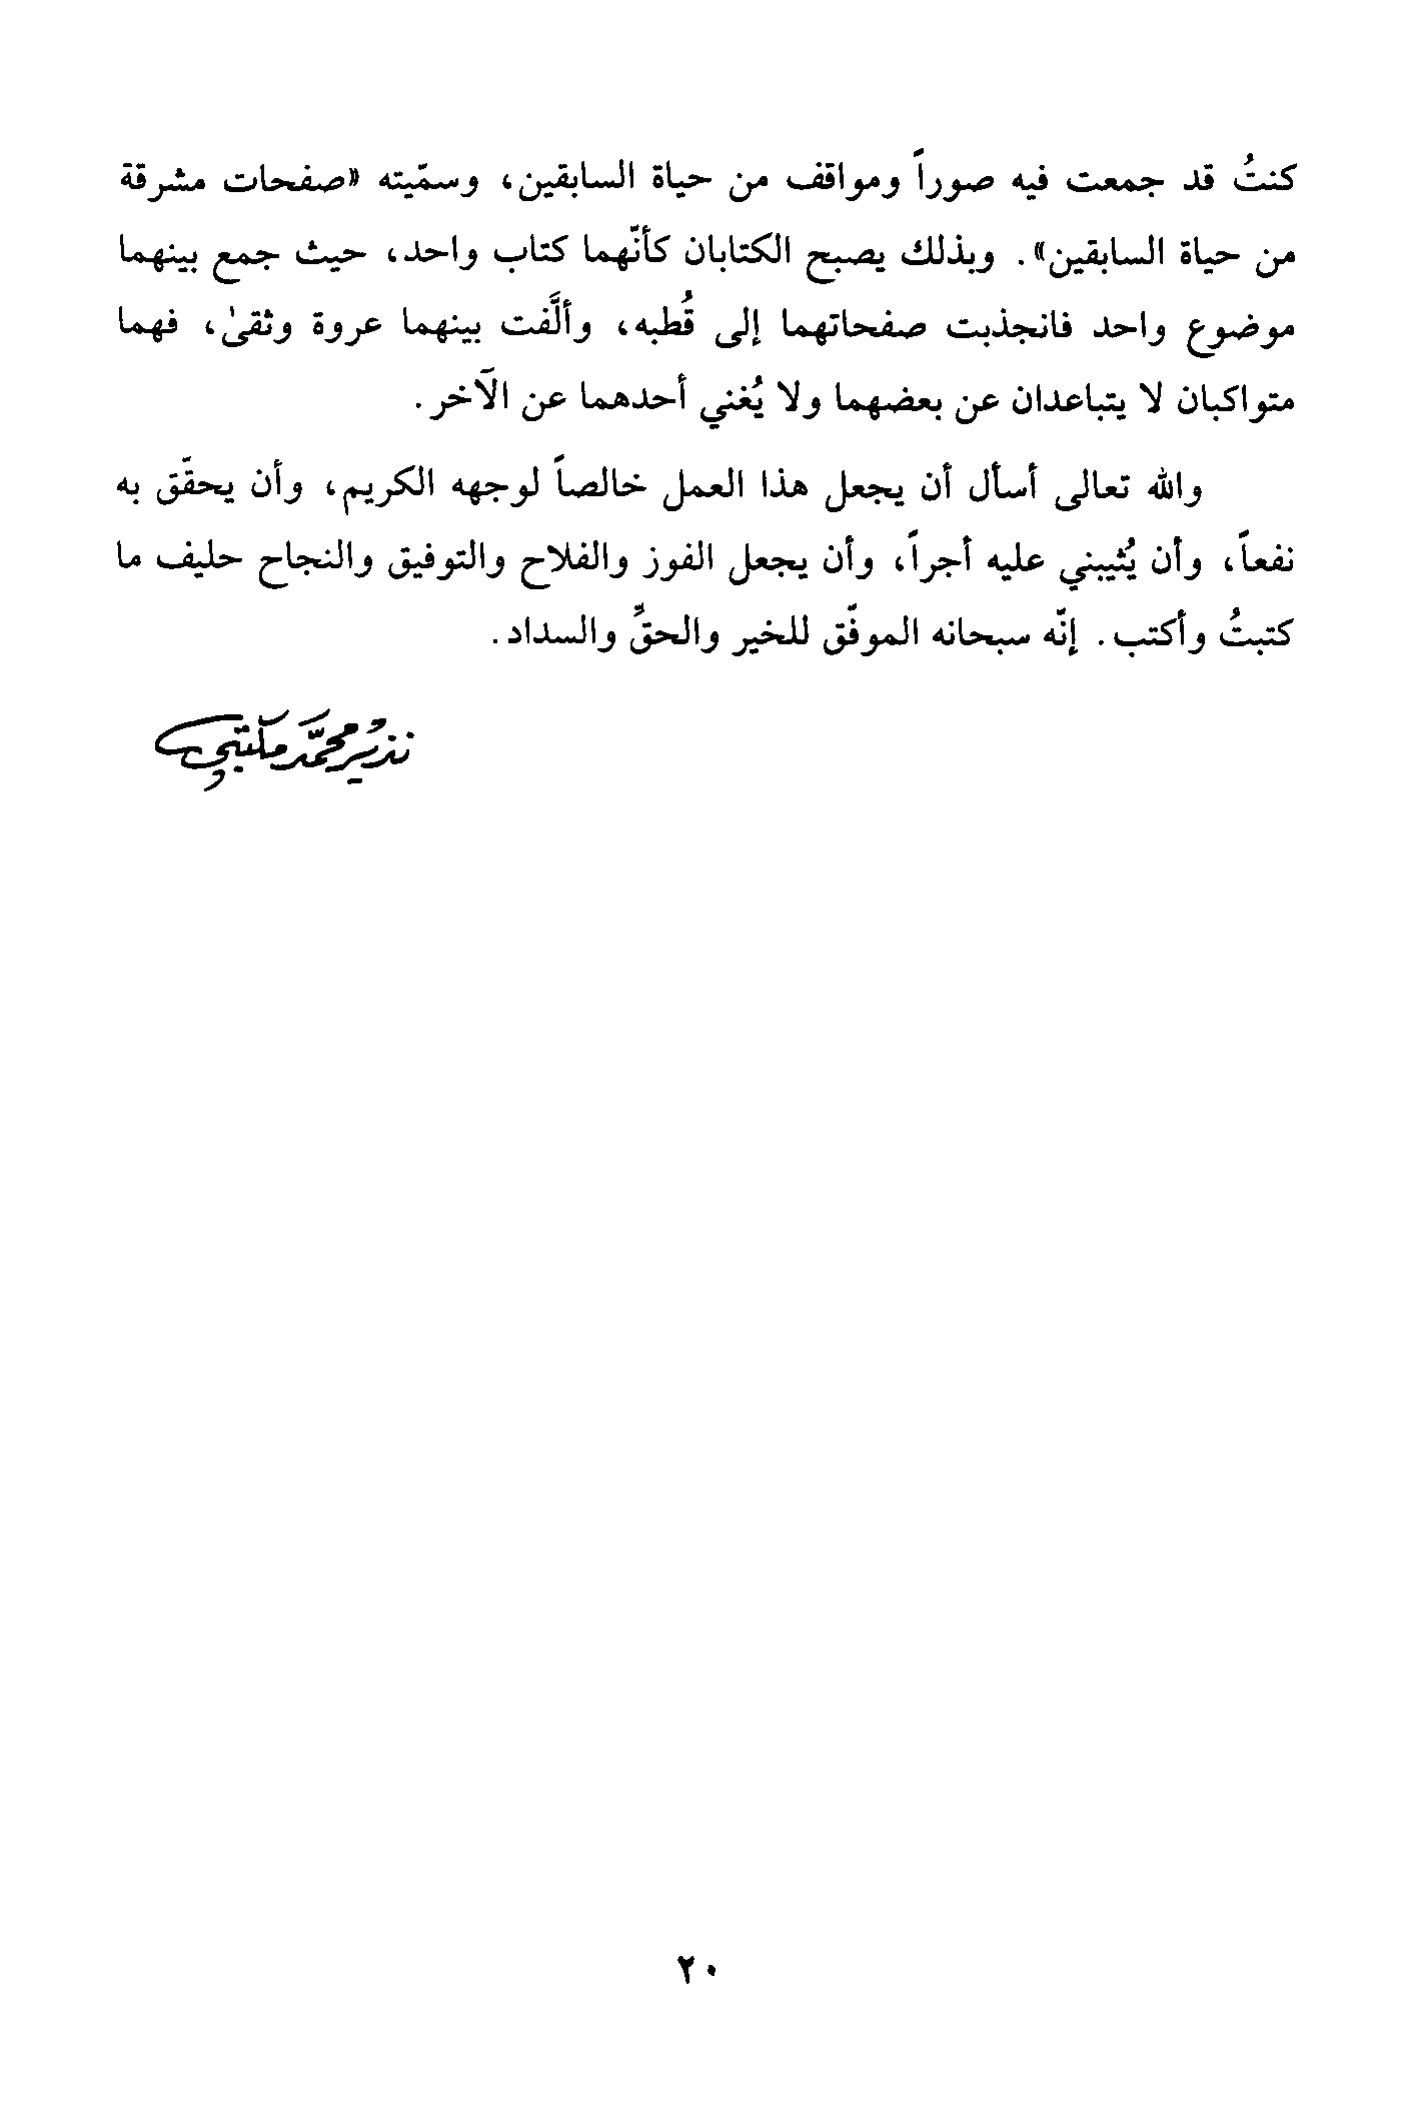 كنتُ قد جمعت فيه صوراً ومواقف من حياة السابقين، وسمّيته «صفحات مشرقة
من حياة السابقين». وبذلك يصبح الكتابان كأنّهما كتاب واحد، حيث جمع بينهما
موضوع واحد فانجذبت صفحاتهما إلى قُطبه، وألَّفت بينهما عروة وثقىٰ، فهما
متواكبان لا يتباعدان عن بعضهما ولا يُغني أحدهما عن الآخر.
والله تعالى أسأل أن يجعل هذا العمل خالصاً لوجهه الكريم، وأن يحقّق به
نفعاً، وأن يُثيبني عليه أجراً، وأن يجعل الفوز والفلاح والتوفيق والنجاح حليف ما
كتبتُ وأكتب. إنّه سبحانه الموفّق للخير والحقِّ والسداد.
نذير محمَّد مكتبي
٢٠